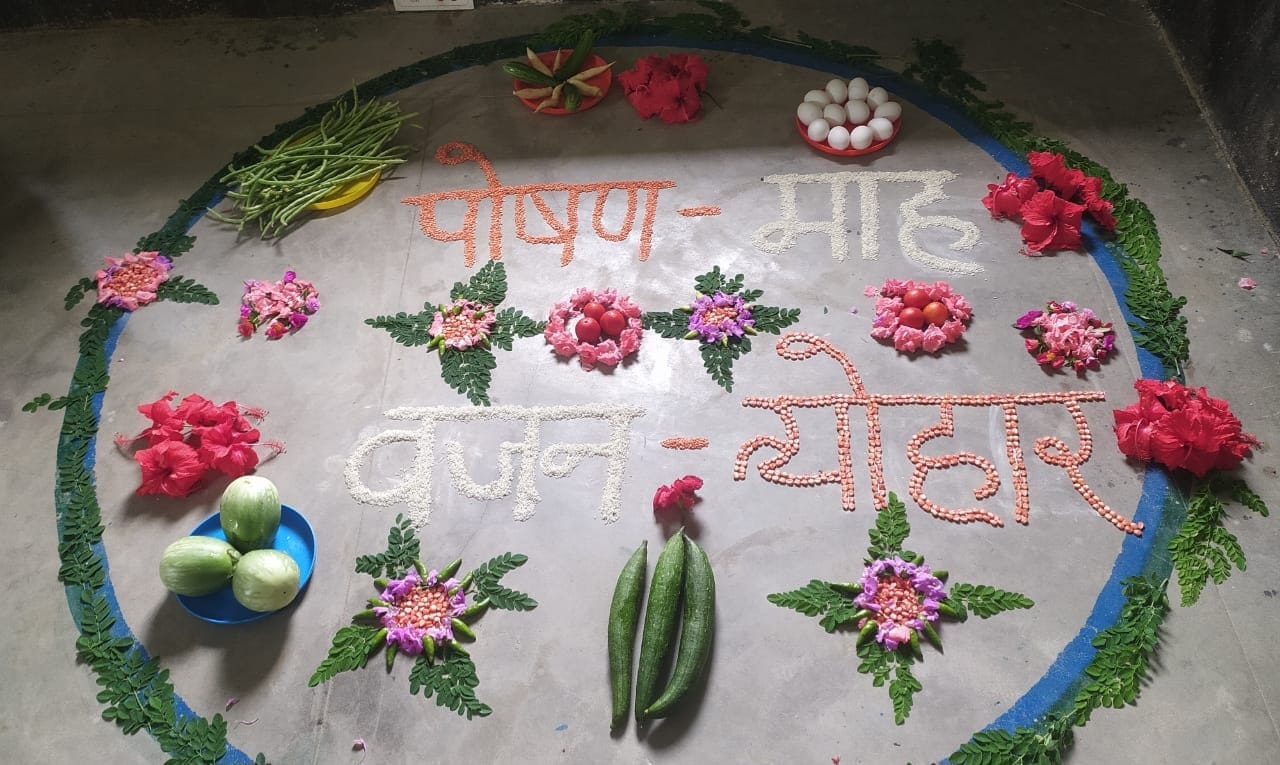 पोषण - माह
वजन - त्योहार